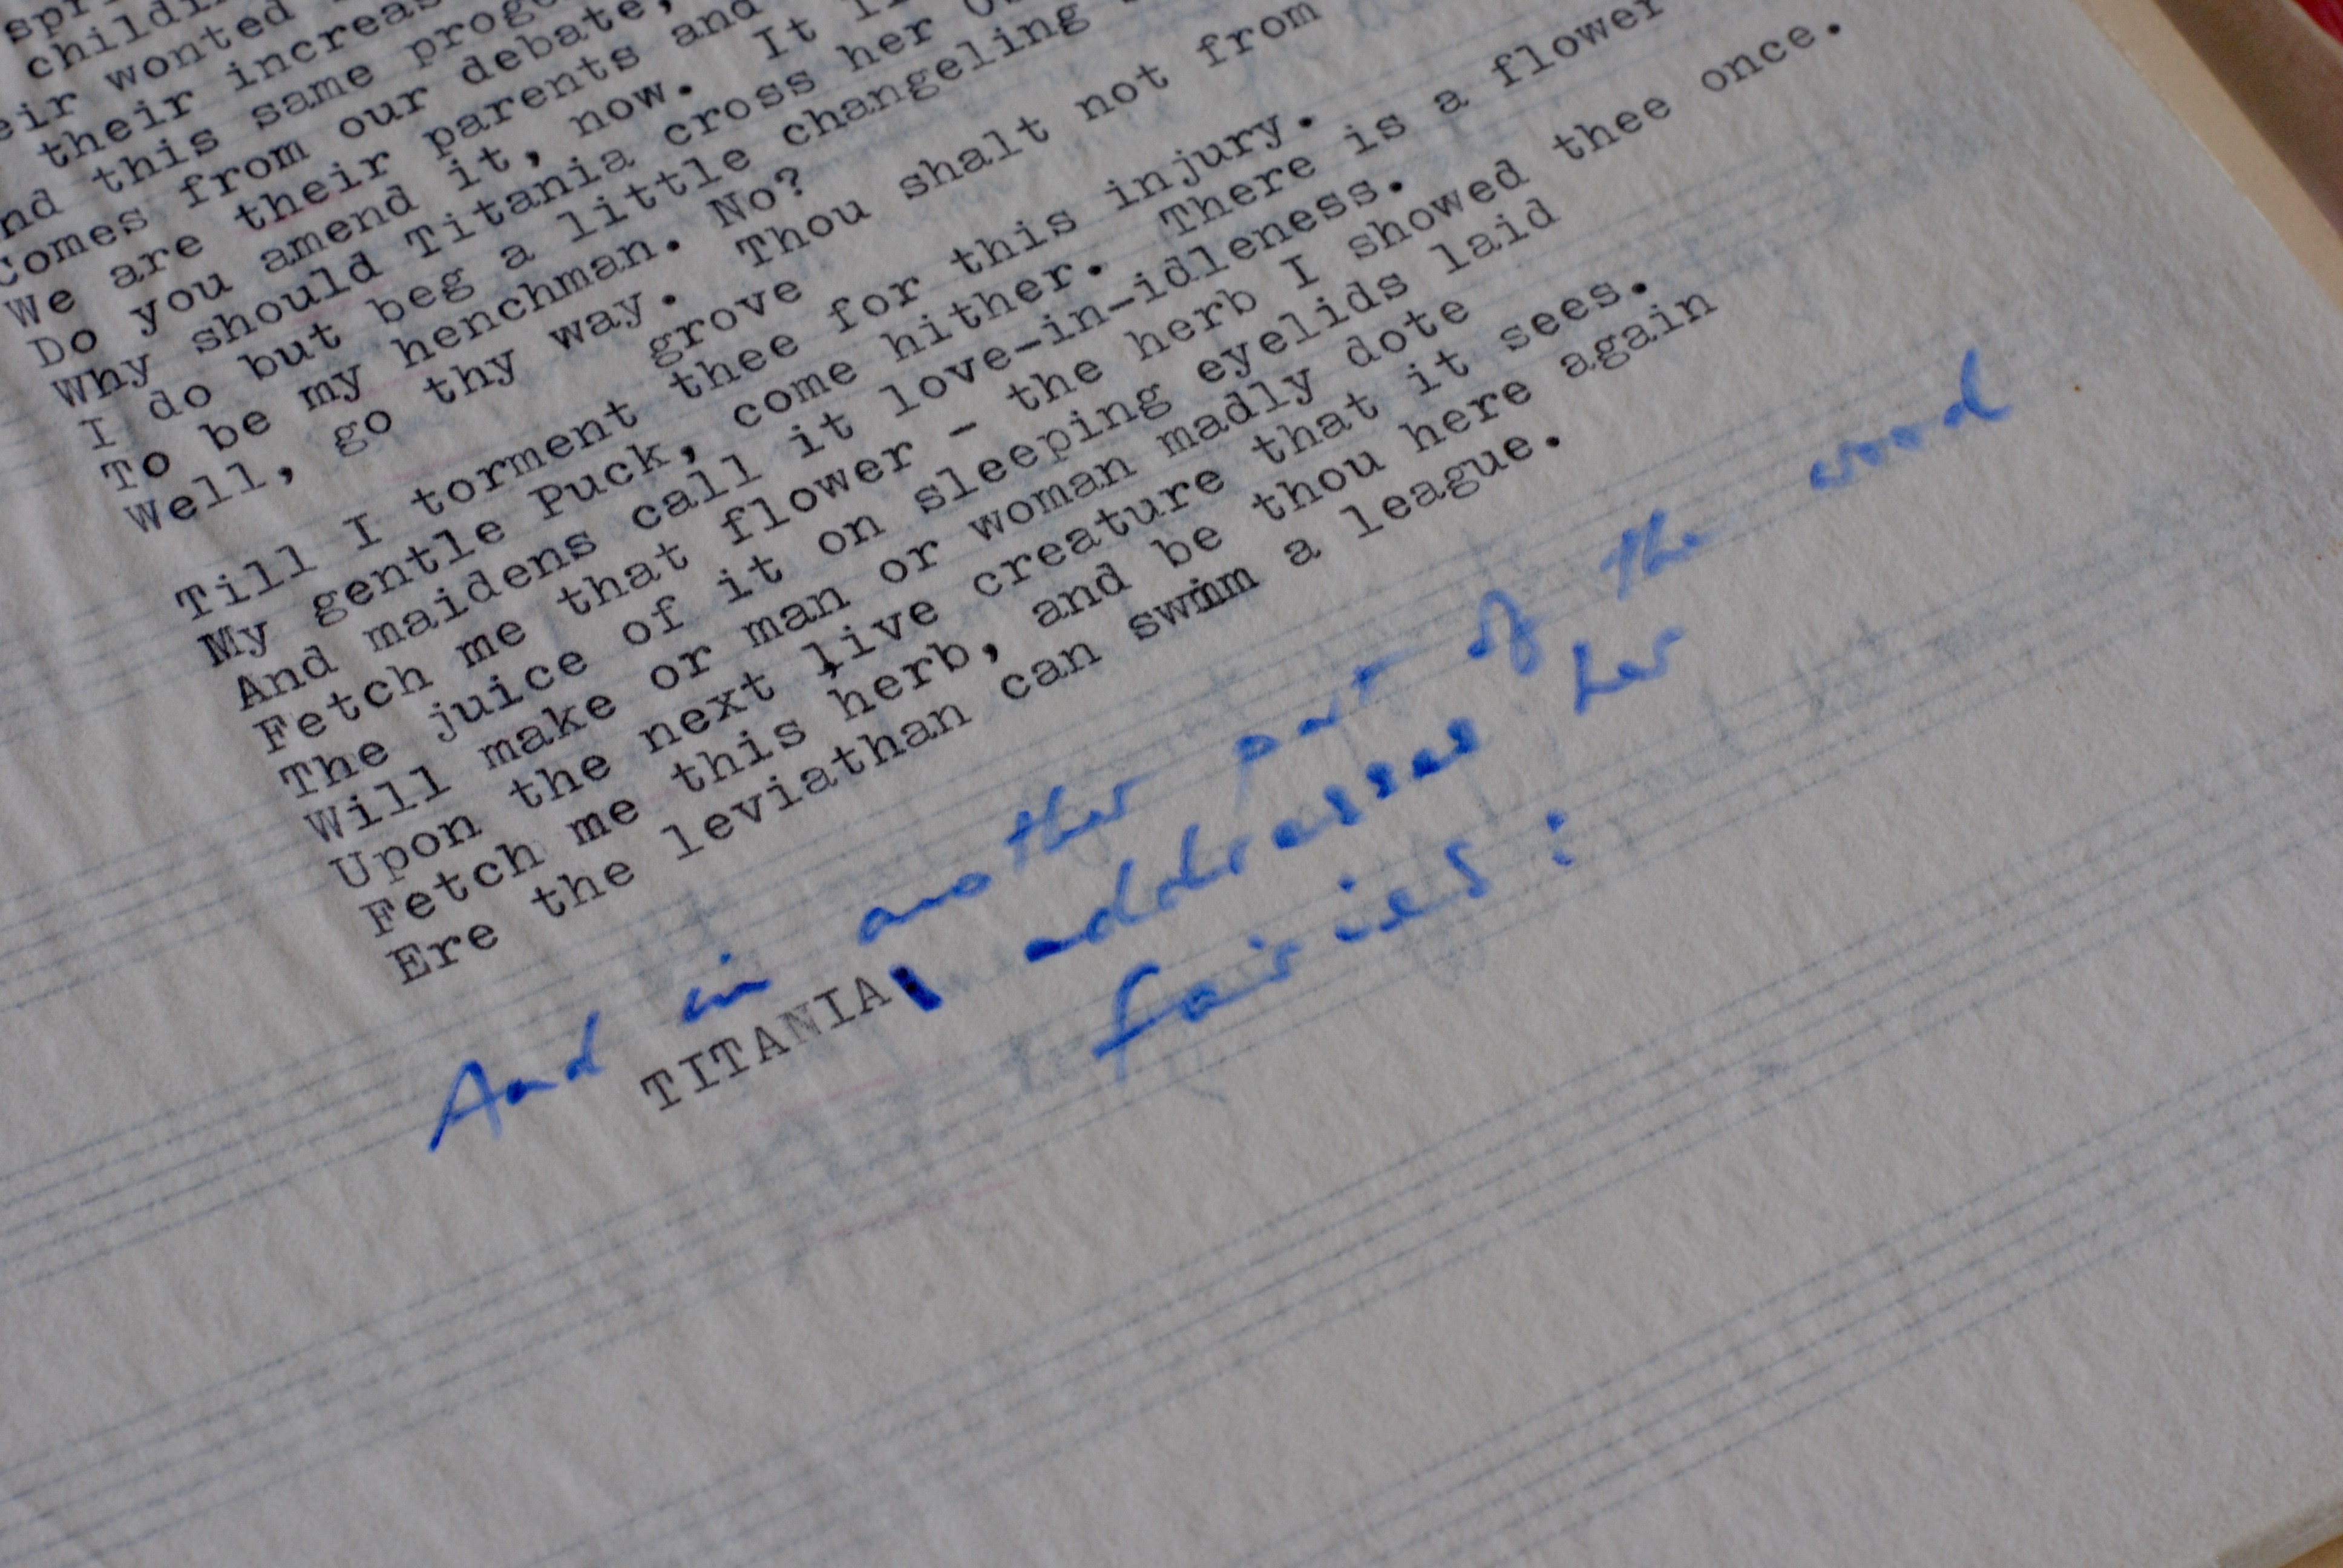 spri
childin
eir wonted
their increas
nd this same proge
comes from our debate,
We are their parents and
Do you amend it, now. It li
Why should Titania cross her Ob
I do but beg a little changeling
To be my henchman. No?
Well, go thy way. Thou shalt not from
grove
Till I torment thee for this injury.
My gentle Puck, come hither. There is a flower
And maidens call it love-in-idleness.
Fetch me that flower - the herb I showed thee once.
The juice of it on sleeping eyelids laid
Will make or man or woman madly dote
Upon the next live creature that it sees.
Fetch me this herb, and be thou here again
Ere the leviathan can swim a league.
And in another part of the wood
TITANIA addresses her
fairies: